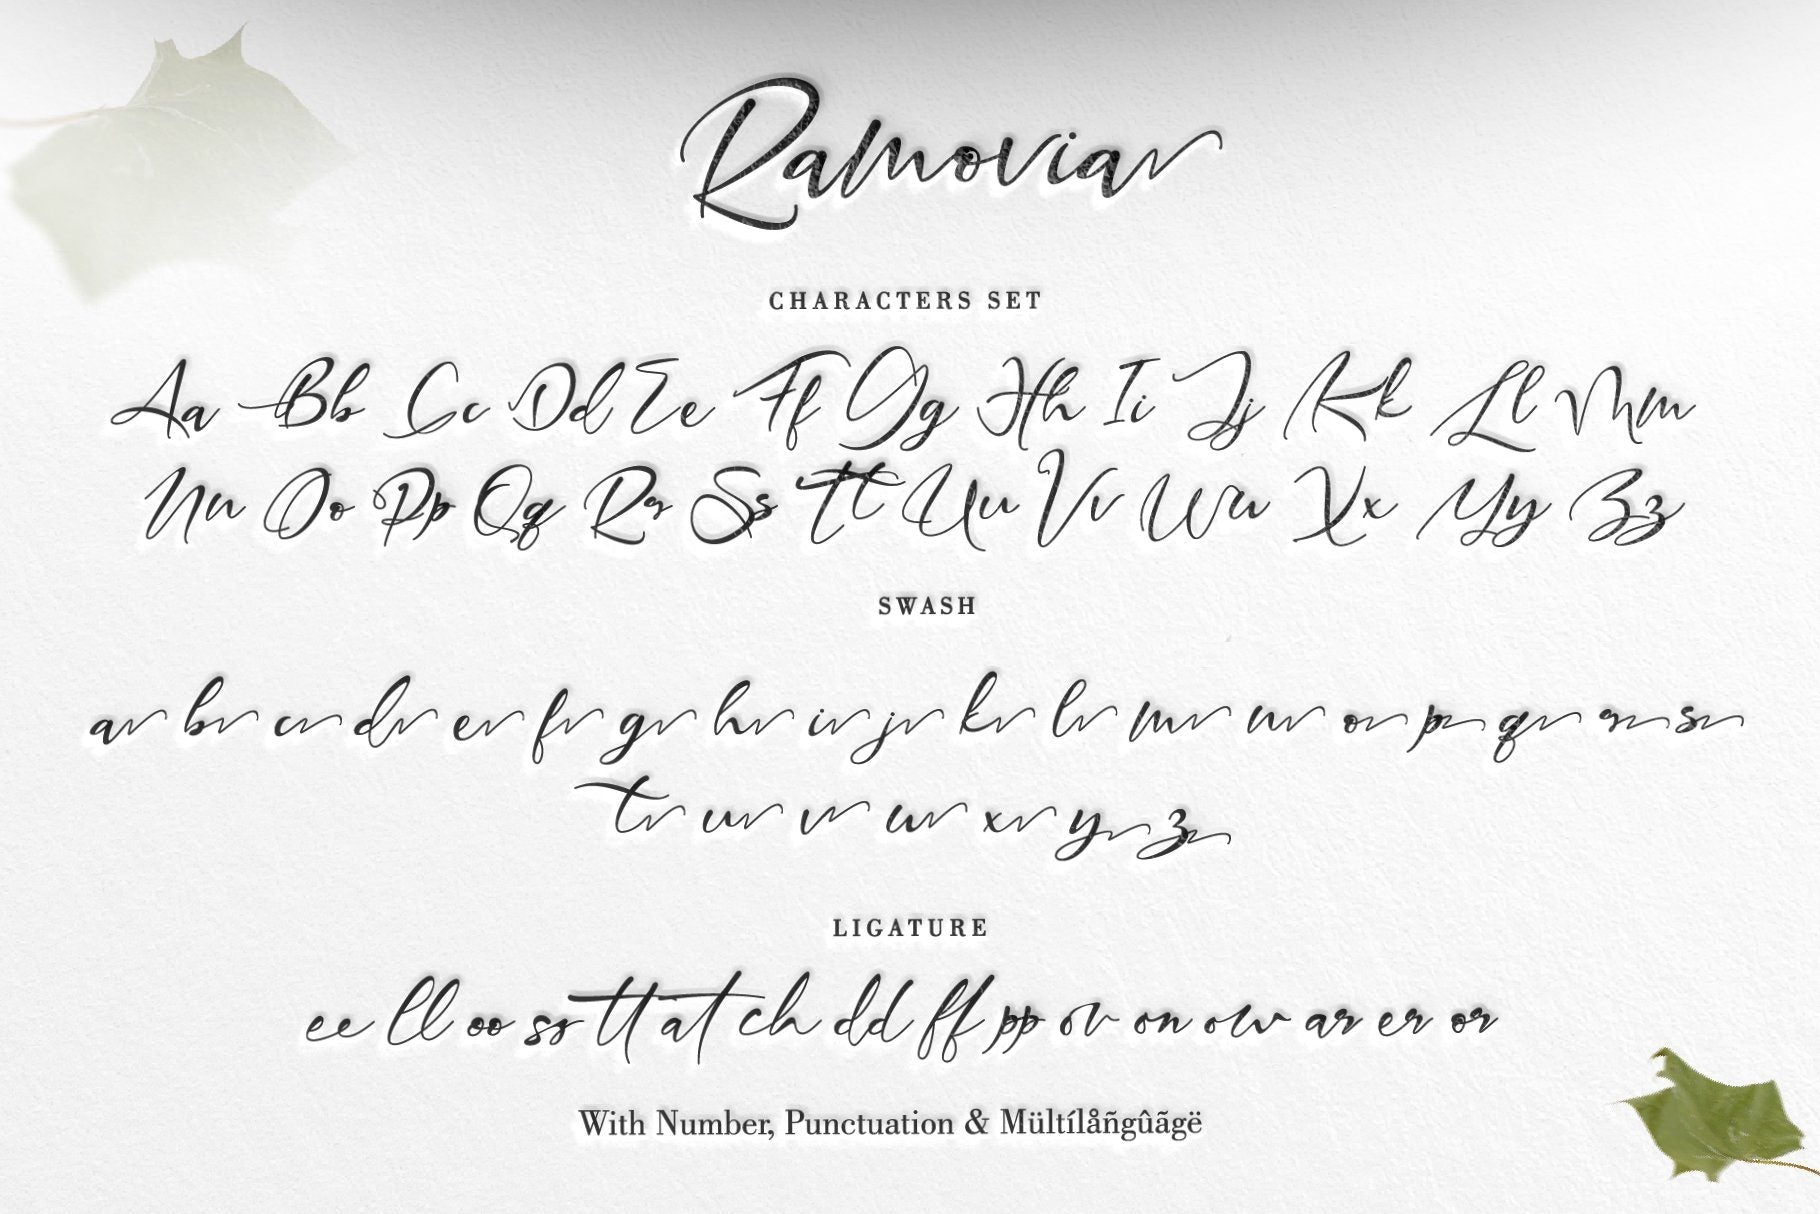 Ramovia
CHARACTERS SET
Aa Bb Cc Dd Ee Ff Gg Hh Ii Jj Kk Ll Mm
Nn Oo Pp Qq Rr Ss Tt Uu Vv Ww Xx Yy Zz
SWASH
a b c d e f g h i j k l m n o p q r s
t u v w x y z
LIGATURE
ee ll oo ss tt at ch dd ff pp ov on ow ar er or
With Number, Punctuation & Mültílåñgûãgë